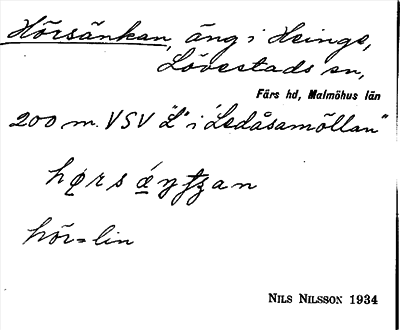 Hörsänkan, äng i Heinge,
Lövestads sn,
Färs hd, Malmöhus län
200 m. VSV "L" i "Ledåsamöllan"
hør̥s
hör = lin
NILS NILSSON 1934